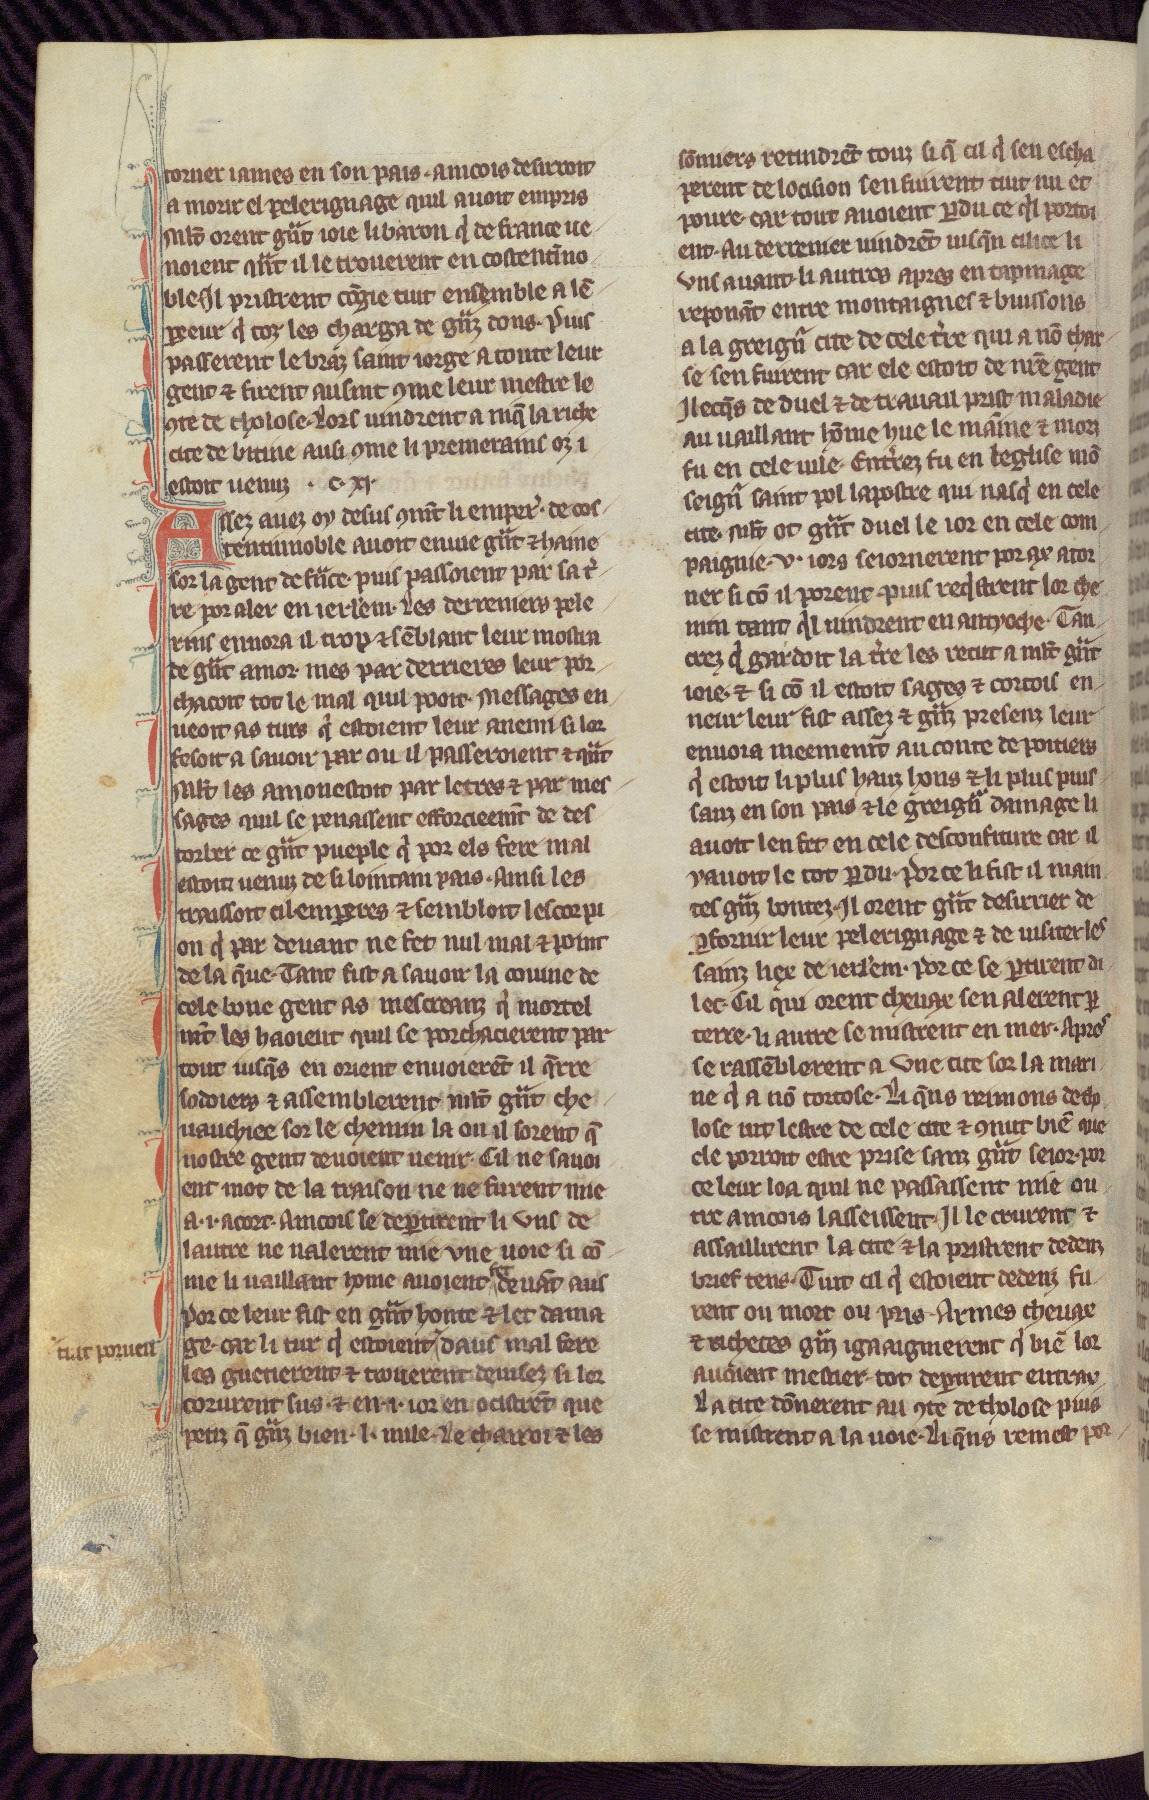 torner iames en son pais. amcois desirroit
a morir el pelerignage quil auoit empris
Mlt orent gnt ioie li baron q de france ue
noient qnt il le trouerent en costentino
ble. Il pristrent cogie tuit ensemble a lē
pereur q toz les charga de gnz dons. Puis
passerent le braz saint iorge a toute leur
gent & firent ausint 9me leur mestre le
9te de tholose. Lors uindrent a niq la riche
cite de bitine ausi 9me li premerains oz i
estoit uenuz . c. xj.
Assez auez oy desus 9mt li emper. de cos
tentinnoble auoit enuie gnt & haine
sor la gent de fnce. puis passoient par sa t̉
re por aler en ierl'em. Les derreniers pele
rins ennora il trop & sēblant leur mostra
de gnt amor. mes par derrieres leur por
chacoit tot le mal quil pooit. Messages en
ueoit as turs q estoient leur anemi si lor
fesoit a sauoir par ou il passeroient & qnt
Mlt les amonestoit par letres & par mes
sages quil se penassent efforcieemt de des
torber ce gnt pueple q por els fere mal
estoit uenuz de si lointain pais. Ainsi les
traissoit cil emperes & sembloit lescorpi
on q par deuant ne fet nul mal & point
de la que. Tant fist a sauoir la couine de
cele bone gent as mescreanz q mortel
mt les haoient quil se porchacierent par
tout iusqs en orient enuoierēt il qrre
sodoiers & assemblerent mlt gnt che
uauchiee sor le chemin la ou il sorent q
nostre gent deuoient uenir. Cil ne sauoi
ent mot de la traison ne ne furent mie
a .i. acort. Amcois se departirent li vns de
lautre ne nalerent mie vne uoie si cō
me li uaillant home auoient fet deuāt aus
Por ce leur fist en gnt honte & let dama
ge. car li tur q estoient daus mal fere
tuit poruen
les guetierent & trouerent deuisez si lor
corurent sus. & en .i. ior en ocistrēt que
petiz q gnz bien .l. mile. Le charroi & les
sōmiers retindrēt touz si q cil q sen escha
perent de locision sen fuirent tuit nu et
poure. car tout auoient pdu ce ql portoi
ent. Au derrenier uindrēt iusqn cilice li
vns auant. li autres apres en tapinage
reponāt entre montaignes & buissons
a la greigñ cite de cele t̉re qui a nō thar
se sen fuirent car ele estoit de nr̄e gent
Ilecqs de duel & de trauail prist maladie
au uaillant hōme hue le maīne & morz
fu en cele uile. Enterrez fu en leglise mō
seigñ saint pol lapostre qui nasq en cele
cite. Mlt ot gnt duel le ior en cele com
paignie. v. iors seiornerent por ax ator
ner si cō il porent. puis reqstrent lor che
min tant ql uindrent en antyoche. Tan
crez q gardoit la t̉re les recut a mlt gnt
ioie. & si cō il estoit sages & cortois en
neur leur fist assez & gnz presenz leur
enuoia meemenīt au conte de poitiers
q estoit li plus hauz hons & li plus puis
sanz en son pais & le greigñ damage li
auoit len fet en cele desconfiture car il
yauoit le tot pdu. Por ce li fist il main
tes gnz bontez. Il orent gnt desirrier de
pfornir leur pelerignage & de uisiter les
sainz liex de ierl'em. por ce se ptirent di
lec. Cil qui orent cheuax sen alerent p
terre. li autre se mistrent en mer. Apres
se rassēblerent a vne cite sor la mari
ne q a nō tortose. Li qns reimons de tho
lose uit lestre de cele cite & 9nut biē que
ele porroit estre prise sanz gnt seior. por
ce leur loa quil ne passassent mie ou
tre amcois lasseissent. Il le crurent &
assaillirent la cite & la pristrent dedenz
brief tens. Tuit cil q estoient dedenz fu
rent ou mort ou pris. Armes cheuax
& richeces gnz igaaignerent q biē lor
auoient mestier. tot departirent entrax
La cite dōnerent au 9te de tholose puis
se mistrent a la uoie. Li qns remest por